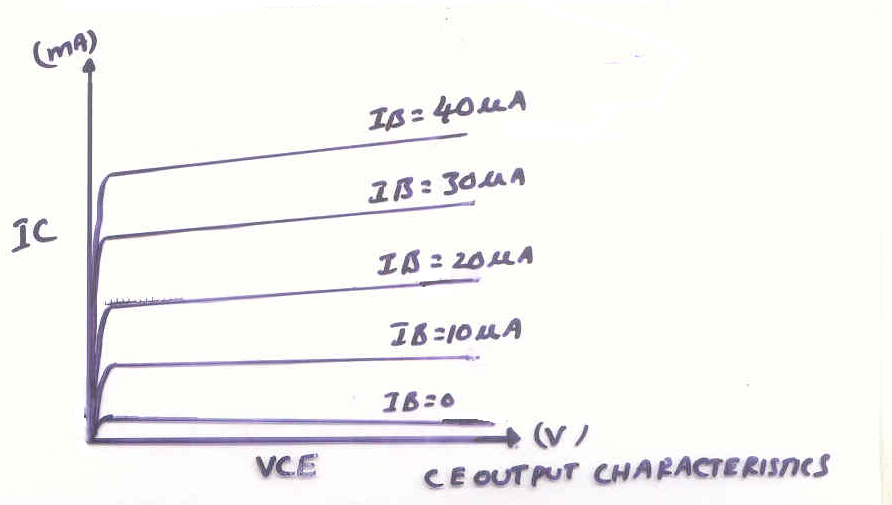 (mA)
IB = 40 μA
IB = 30 μA
IC
IB = 20 μA
IB = 10 μA
IB = 0
(V)
VCE
CE OUTPUT CHARACTERISTICS